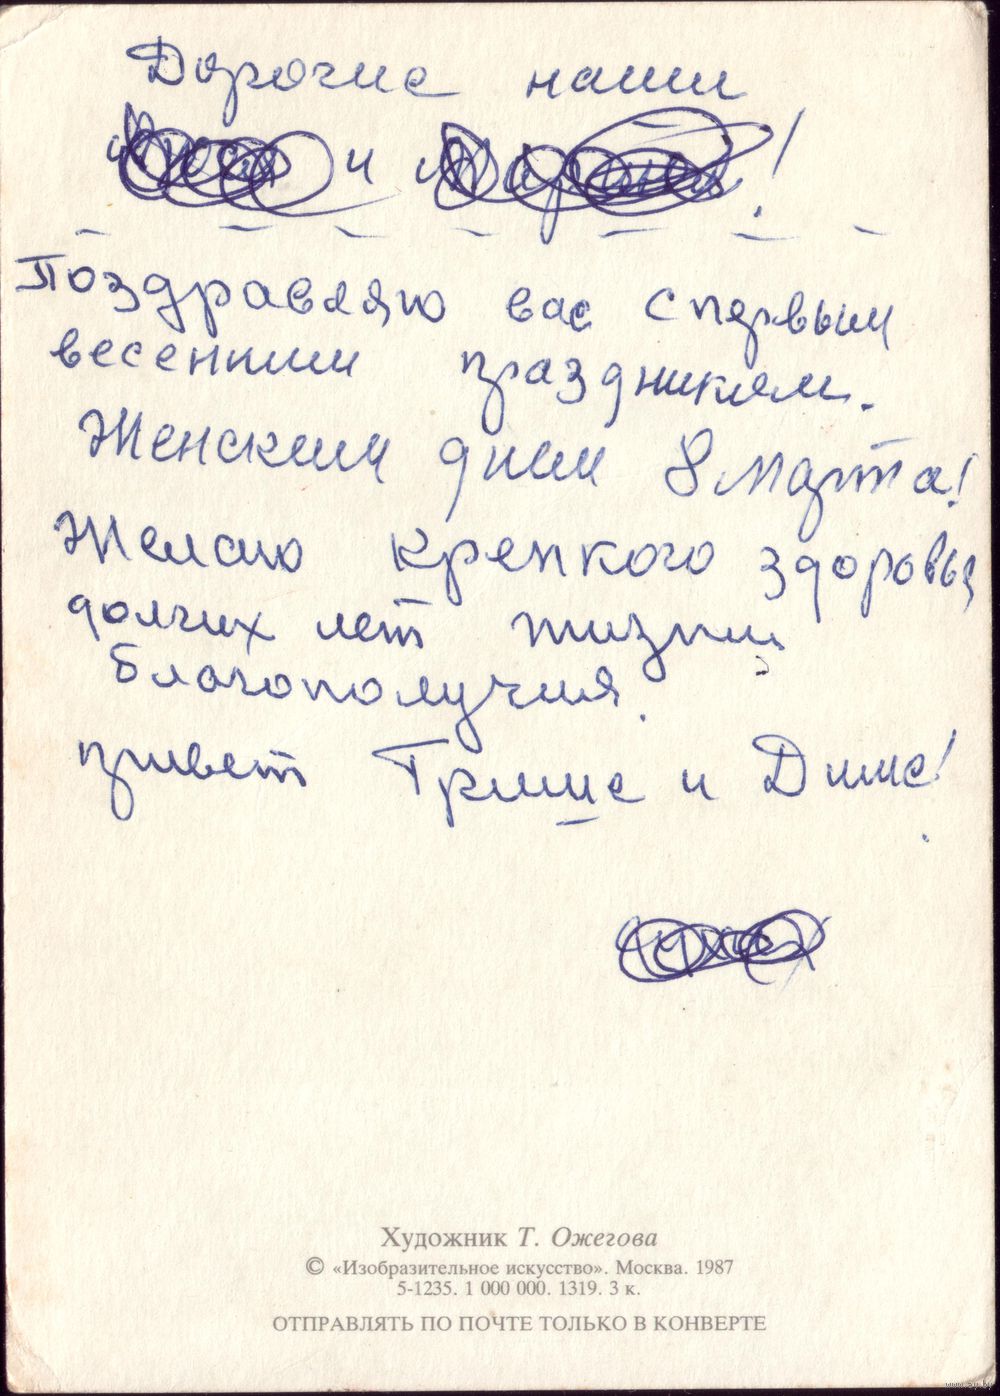 Дорогие наши
и !
Поздравляю вас с первым
весенним праздником.
Женским днем 8 марта!
Желаю крепкого здоровья
долгих лет жизни
благополучия.
привет Грише и Диме!
Художник Т. Ожегова
© «Изобразительное искусство». Москва. 1987
5-1235. 1 000 000. 1319. 3 к.
ОТПРАВЛЯТЬ ПО ПОЧТЕ ТОЛЬКО В КОНВЕРТЕ